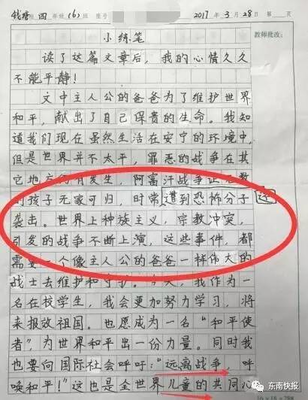 钱塘 四 年级(6)班 2017年3月28日
教师批改:
小练笔
读了这篇文章后，我的心情久久
不能平静！
文中主人公的爸爸为了维护世界
和平，献出了自己宝贵的生命。我知
道我们现在虽然生活在安宁的环境中，
但是世界并不太平，罪恶的战争在其
它地方 发生，阿富汗战争让无数
的孩子无家可归，时常遭到恐怖分子 这
袭击。世界上种族主义，宗教冲突，
引发的战争不断上演，这些事件，都
需要一个像主人公的爸爸一样伟大的
战士去维护和 。我作为一
名在校学生，我会更加努力学习，将
来报效祖国。也愿成为一名“和平使
者”，为世界和平出一份力量。同时我
也要向国际社会呼吁：“远离战争，呼
唤和平！”这也是全世界儿童的共同心
东南快报